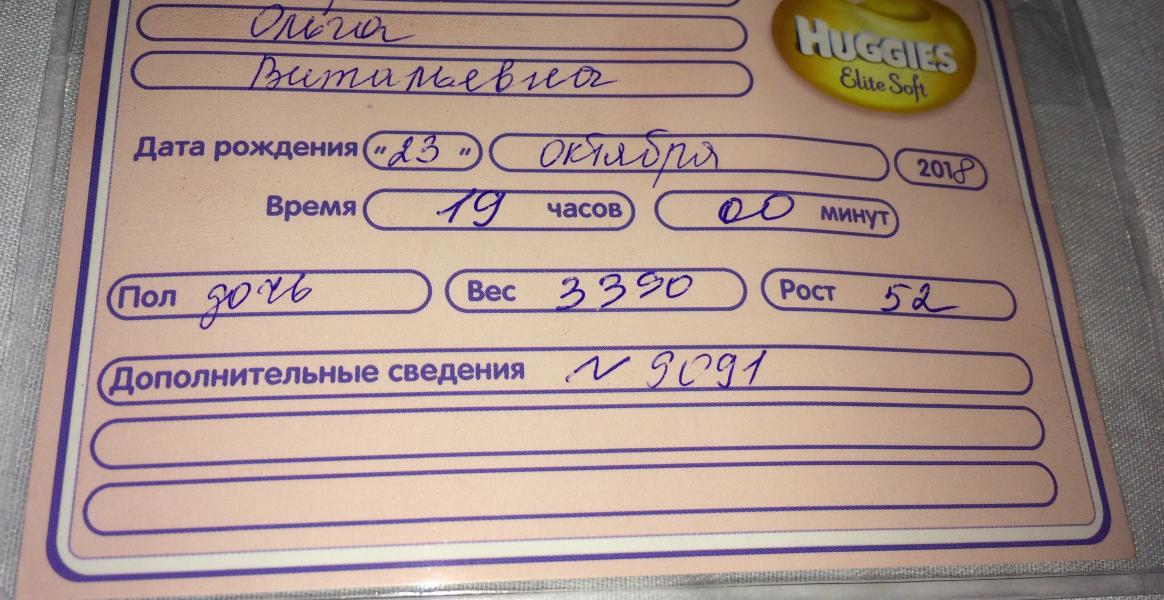 Ольга
HUGGIES
Elite Soft
Витальевна
Дата рождения "23" октября 2018
Время 19 часов 00 минут
Пол дочь Вес 3390 Рост 52
Дополнительные сведения N 9091